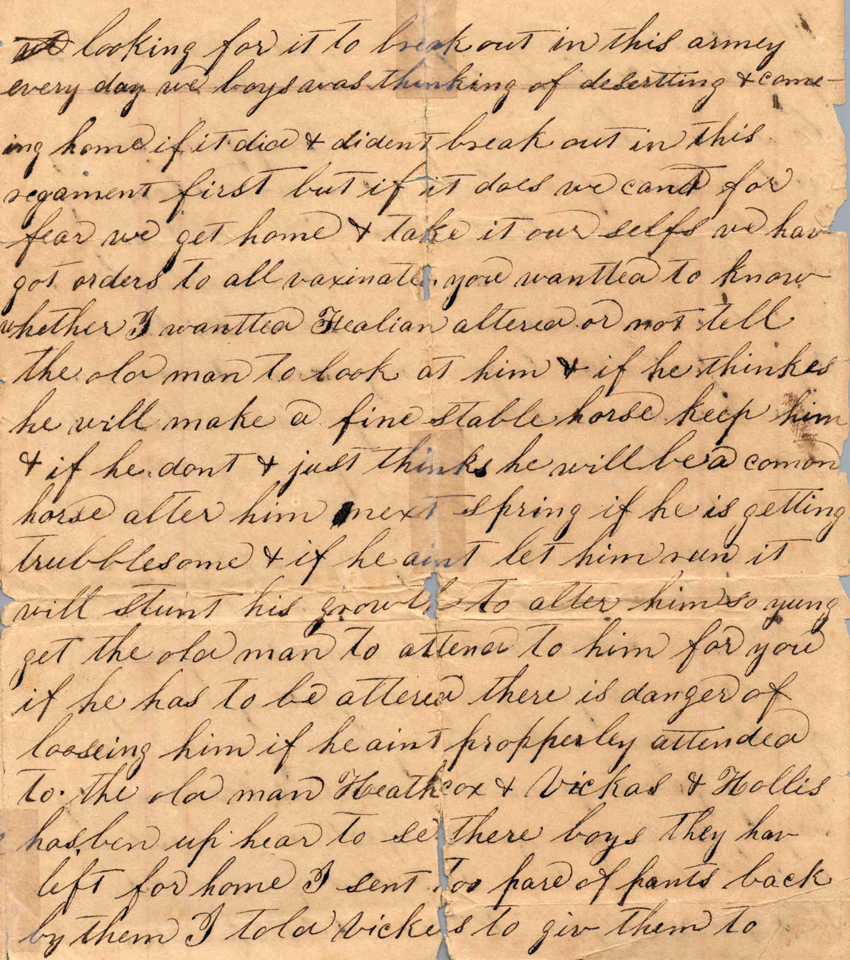 looking for it to break out in this armey
every day we boys was thinking of desertting & come-
ing home if it did & dident break out in this
regament first but if it does we cand for
fear we get home & take it our selfs we hav
got orders to all vaxinate you wantted to know
whether I wantted Italian altered or not tell
the old man to look at him & if he thinkes
he will make a fine stable horse keep him
& if he dont & just thinks he will be a comon
horse alter him next spring if he is getting
trubblesome & if he aint let him run it
will stunt his growth to alter him so yung
get the old man to attend to him for you
if he has to be altered there is danger of
looseing him if he aint propperley attended
to. the old man Heathcox & Vickas & Hollis
has ben up hear to se there boys they hav
left for home I sent too pare of pants back
by them I told Vickers to giv them to